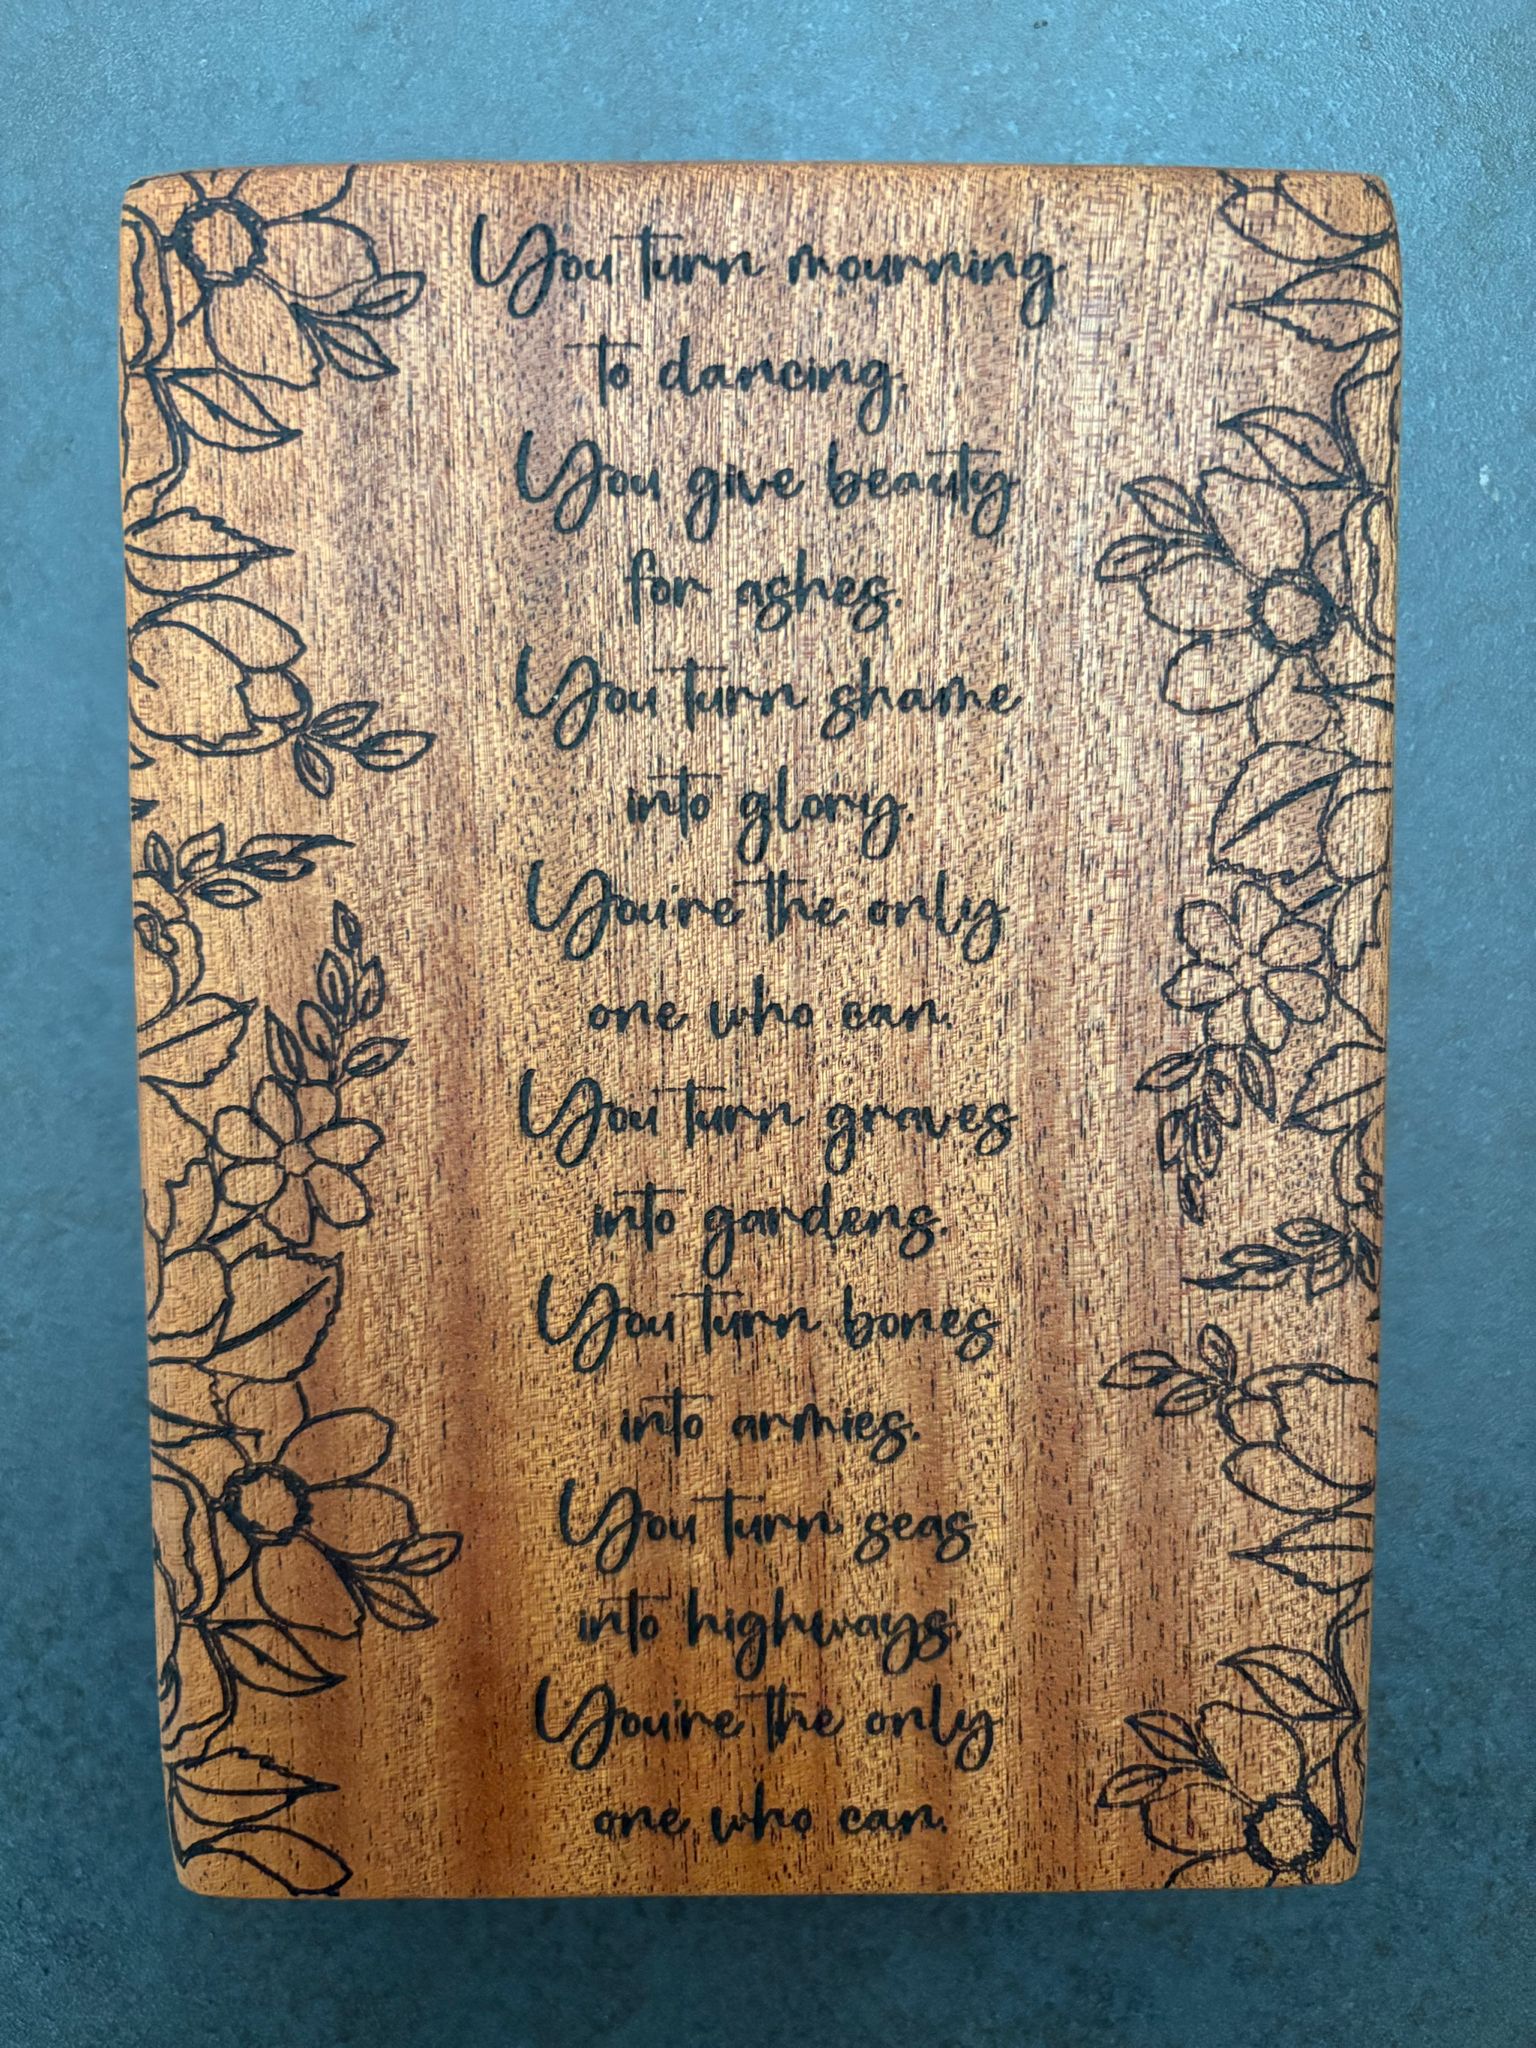 You turn mourning
to dancing.
You give beauty
for ashes.
You turn shame
into glory.
You're the only
one who can.
You turn graves
into gardens.
You turn bones
into armies.
You turn seas
into highways.
You're the only
one who can.